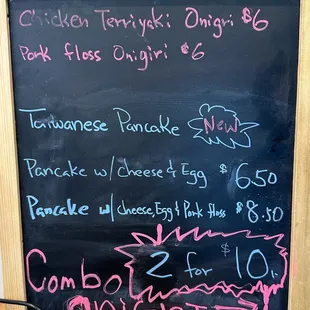 Chicken Terriyaki Onigri $6
Pork floss Onigiri $6
Taiwanese Pancake New
Pancake w/ cheese & Egg $6.50
Pancake w/ cheese, Egg & Pork floss $8.50
Combo 2 for $10.